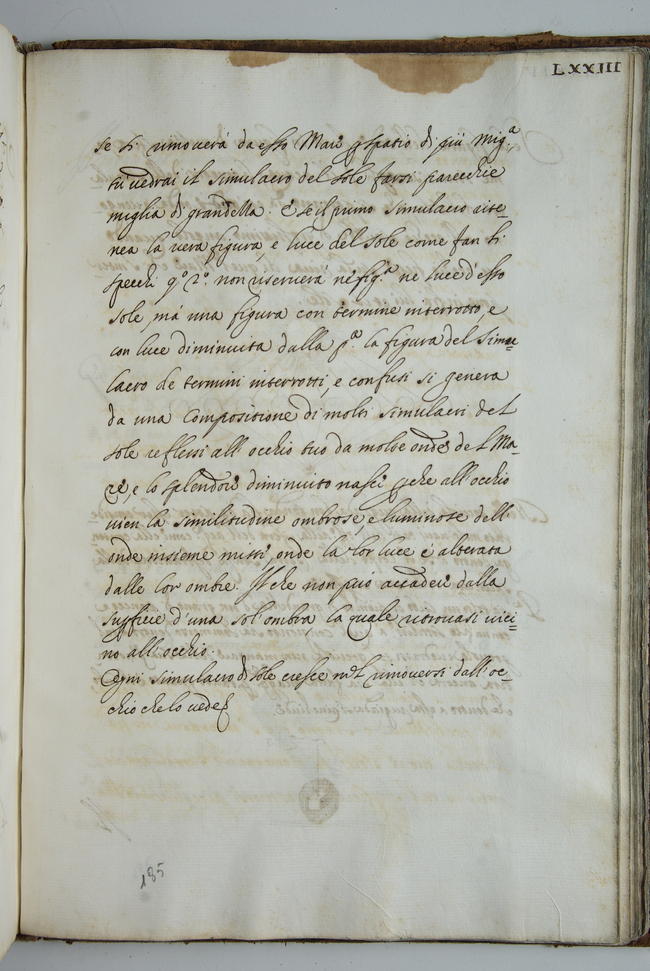 LXXIII
se ti rimoverà da esso Mare p spatio di più mig.ª
tu vedrai il simulacro del sole farsi parecchie
miglia di grandezza. E se il primo simulacro rite-
nea la vera figura, e luce del sole come fan li
specchi q.º 2.º non riserverà ne fig.ª ne luce d'esso
sole, mà una figura con termine interrotto, e
con luce diminuita dalla p.ª la figura del simu-
lacro de termini interrotti, e confusi si genera
da una compositione di molti simulacri del
sole reflessi all'occhio tuo da molte onde del Ma-
re, e lo splendore diminuito nasce pche all'occhio
vien la similitudine ombrose, e luminose dell'
onde insieme miste, onde la lor luce è alterata
dalle lor ombre. Il che non può accadere dalla
supficie d'una sol'ombra, la quale ritrovasi vici-
no all'occhio.
Ogni simulacro di sole cresce nel rimoversi dall'oc-
chio che lo vede
185